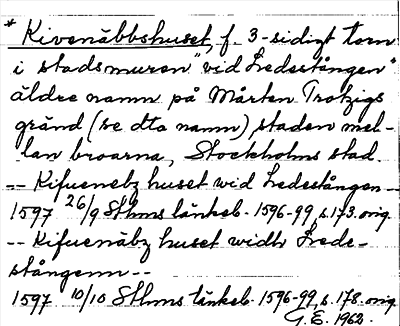 * Kivenäbbshuset, f. 3-sidigt torn
i stadsmuren "vid Ledestången"
äldre namn på Mårten Trotzigs
gränd (se dta namn) staden mel-
lan broarna, Stockholms stad.
-- Kifuenebz huset wid Ledestången --
1597 26/9 Sthms tänkeb. 1596-99, s. 173. orig.
-- Kifuenäbz huset widh Lede-
stångenn --
1597 10/10 Sthms tänkeb. 1596-99, s. 178. orig.
G. E. 1962.